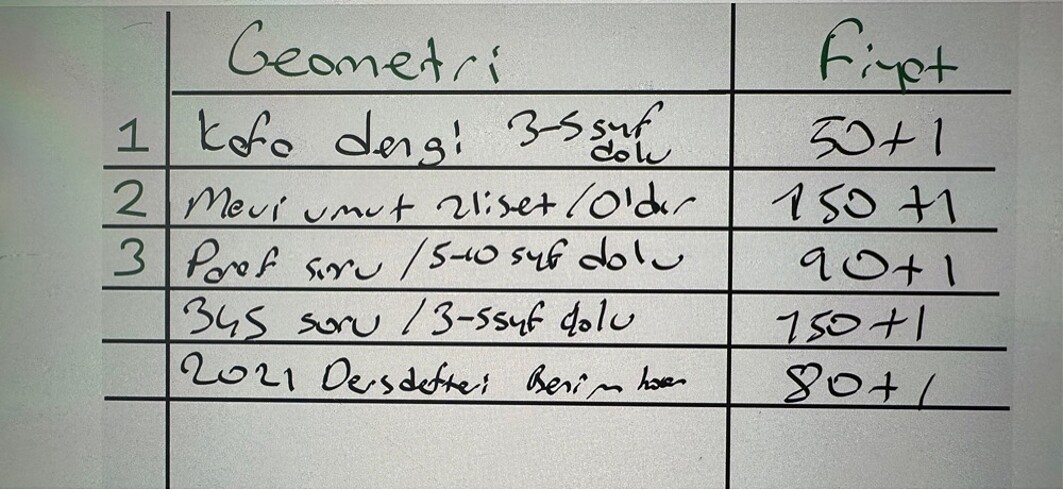 Geometri Fiyat
1 Kafa dengi 3-5 syf dolu 50+1
2 Mavi umut 2liset / 0'ldır 150+1
3 Paraf soru / 5-10 syf dolu 90+1
345 soru / 3-5 syf dolu 150+1
2021 Ders defteri Benim hocam 80+1